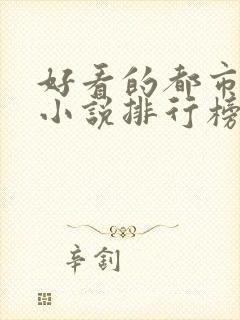 好看的都市
小说排行榜
辛劄